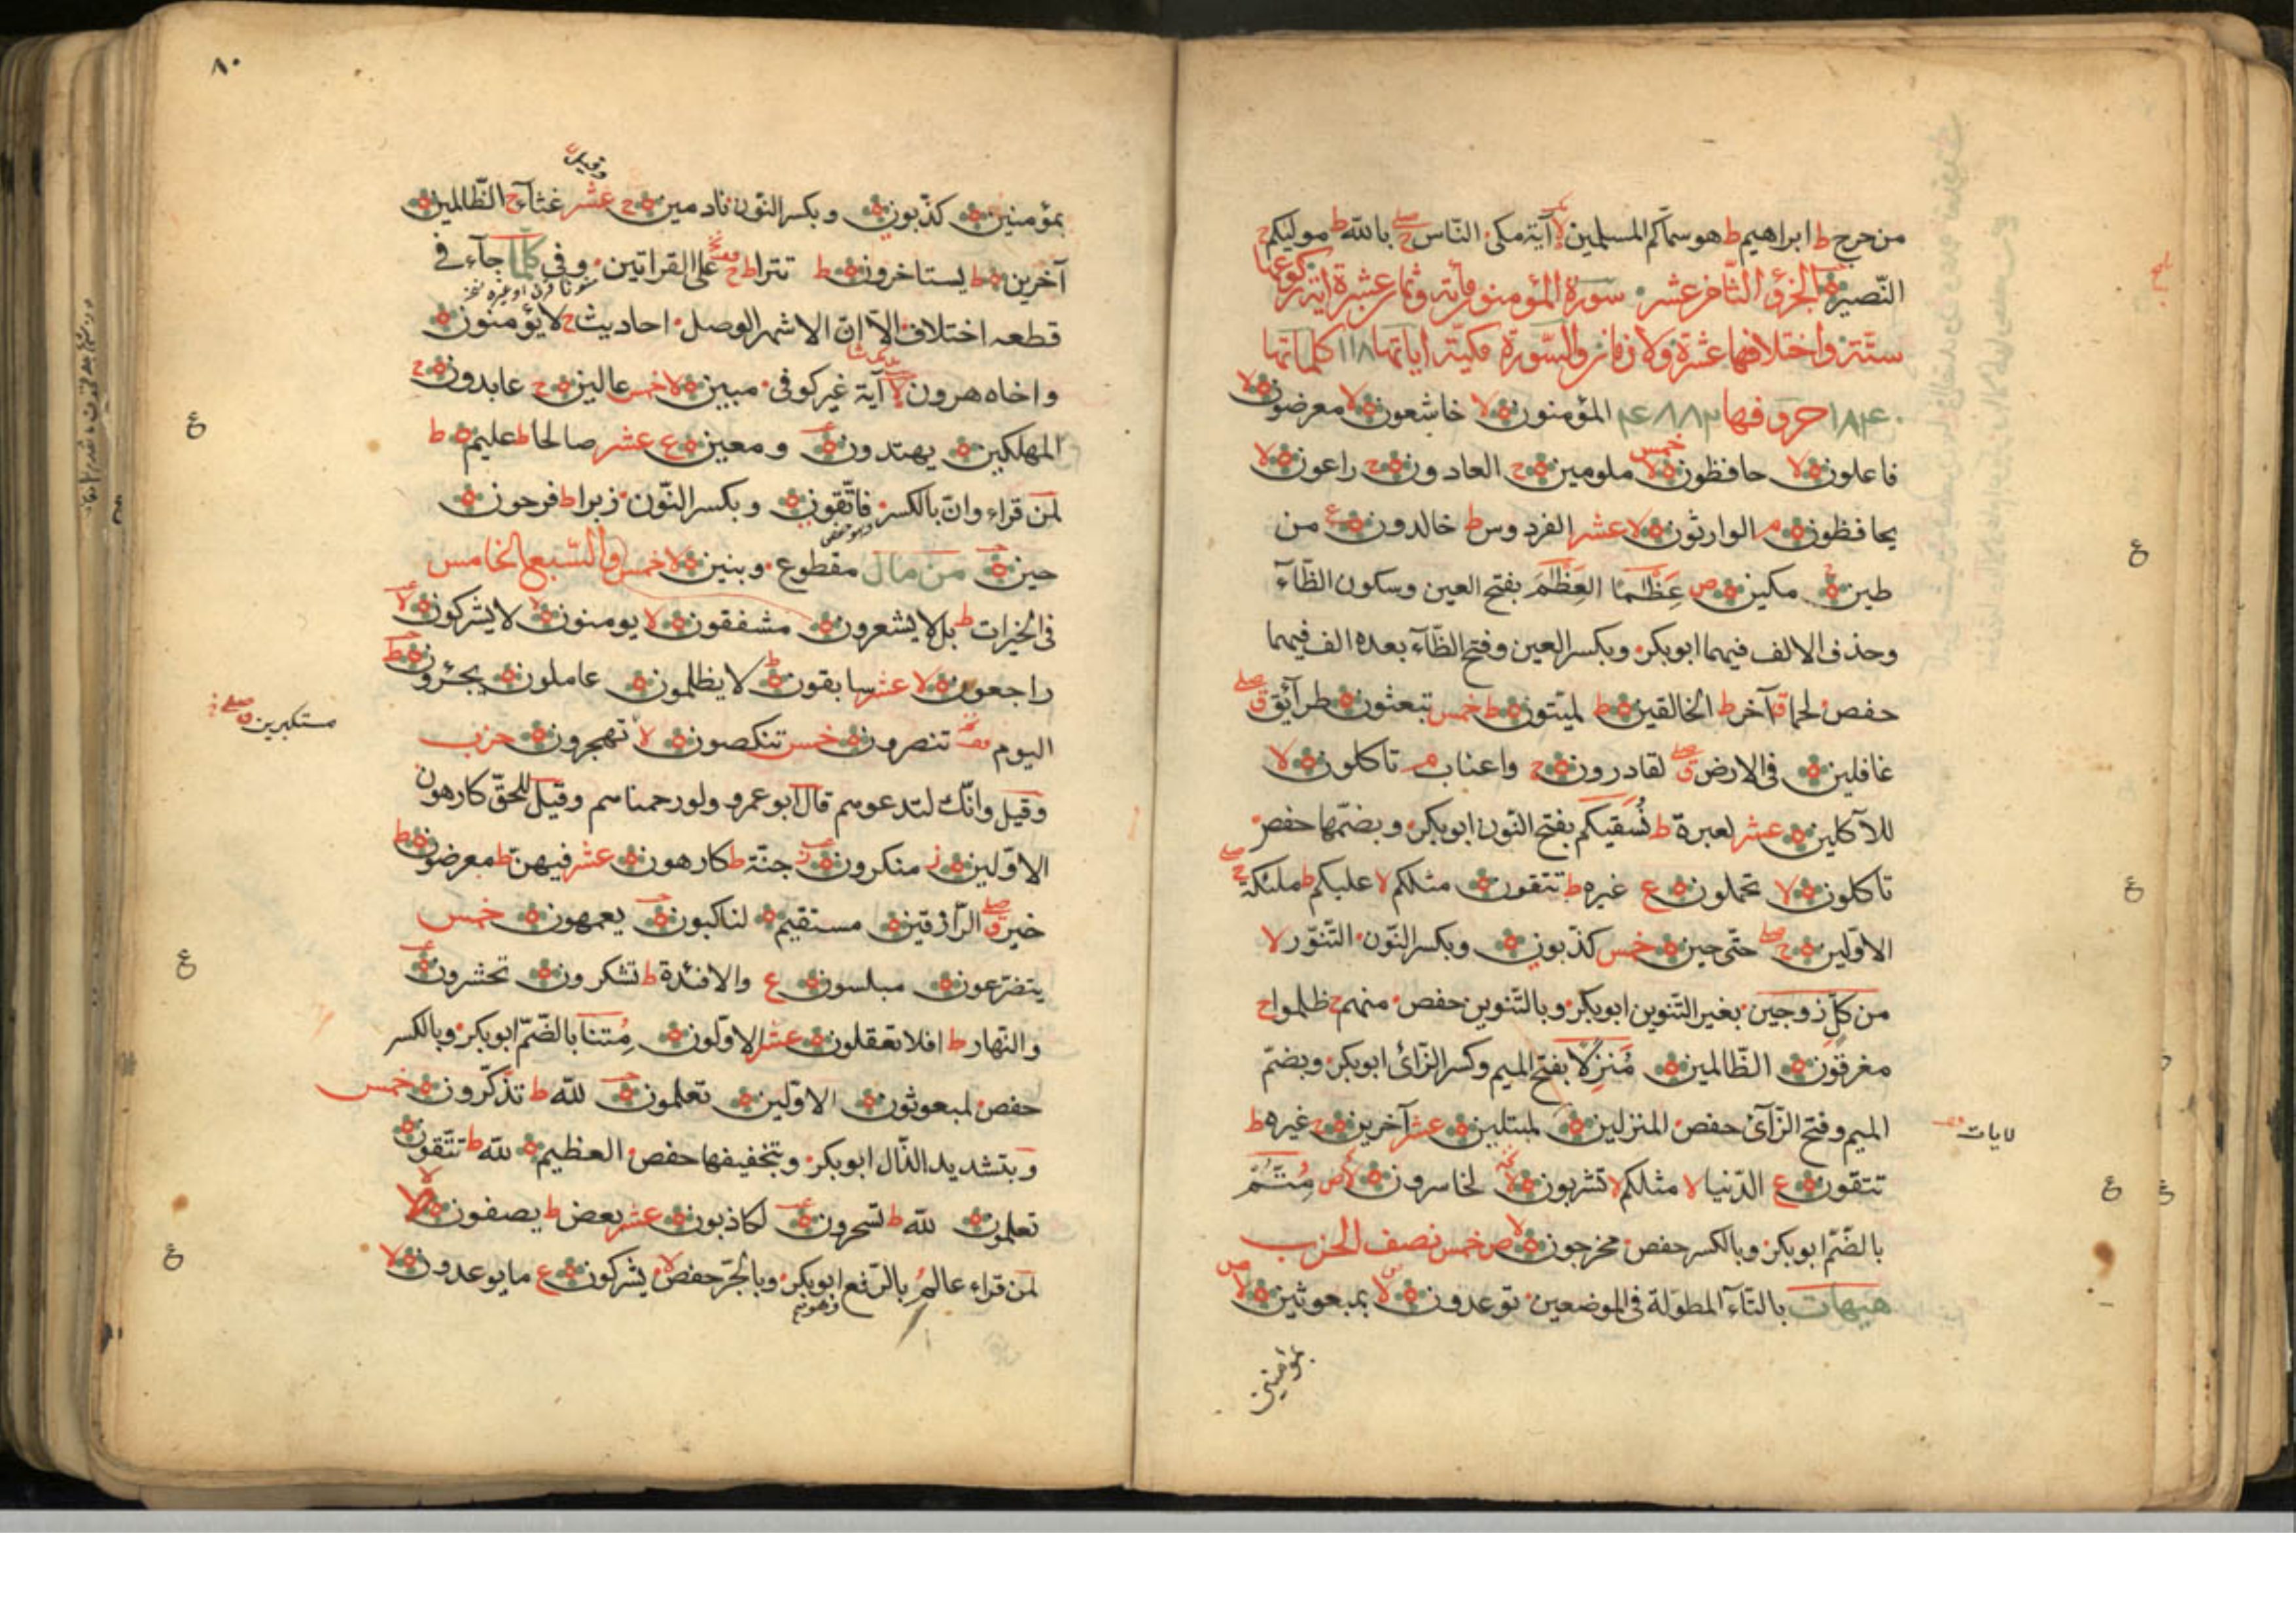 من حرج ط ابراهيم ط هو سماكم المسلمين لا آية مكى الناس ج صلى بالله ط موليكم ج
النصير الجزؤ الثامن عشر سورة المؤمنون مائة وثمان عشرة اية ركوعها
ستة واختلافها عشرة ولا والسورة مكية اياتها ١١٨ كلماتها
١٨٤٠ حروفها المؤمنون لا خاشعون لا معرضون لا
فاعلون لا حافظون لا خمس ملومين ج العادون ج راعون لا
يحافظون م الوارثون لا عشر الفردوس ط خالدون ع من
طين ج مكين ص عظما العظم بفتح العين وسكون الظآء
وحذف الالف فيهما ابوبكر وبكسر العين وفتح الظآء بعده الف فيهما
حفص لحما ق آخر ط الخالقين ط لميتون ط خمس تبعثون طرآئق ق صلى
غافلين فى الارض ق صلى لقادرون ج واعناب م تاكلون لا
للآكلين عشر لعبرة ط نسقيكم بفتح النون ابوبكر وبضمها حفص
تاكلون لا تحملون ع غيره ط تتقون مثلكم لا عليكم ط ملئكة ج صلى
الاولين ج صلى حتى حين خمس كذبون وبكسر النون التنور لا
من كل زوجين بغير التنوين ابوبكر وبالتنوين حفص منهم ج ظلموا ج
مغرقون الظالمين منزلا بفتح الميم وكسر الزائ ابوبكر وبضم
الميم وفتح الزآئ حفص المنزلين لمبتلين عشر آخرين ج غيره ط
لايات
تتقون ع الدنيا لا مثلكم لا تشربون لا لخاسرون لا ص متم
بالضم ابوبكر وبالكسر حفص مخرجون لا ص خمس نصف الحزب
هيهات بالتآء المطولة فى الموضعين توعدون لا بمبعوثين لا ص
بمؤمنين
٨٠
وقيل
بمؤمنين كذبون وبكسر النون نادمين ج عشر غثآء ج الظالمين
آخرين ط يستاخرون ط تترا ط ج على القراتين وفى كلما جآء فى
قطعه اختلاف الا ان الاشهر الوصل احاديث ج لا يؤمنون
واخاه هرون لا آية غير كوفى مبين لا خمس عالين ج عابدون ج
المهلكين يهتدون ومعين ع عشر صالحا ط عليم ط
لمن قراء وان بالكسر فاتقون وبكسر النون زبرا ط فرحون
حين من مال مقطوع وبنين لا خمس والسبع الخامس
فى الخيرات ط بل لا يشعرون مشفقون لا يومنون لا لا يشركون لا
راجعون لا عشر سابقون ط لا يظلمون عاملون يجئرون ط
مستكبرين ق صلى
اليوم تنصرون خمس تنكصون لا تهجرون حزب
وقيل وانك لتدعوهم قال ابو عمرو ولو رحمناهم وقيل للحق كارهون
الاولين ز منكرون ز جنة ط كارهون عشر فيهن ط معرضون ط
خير ق صلى الرازقين مستقيم لناكبون يعمهون خمس
يتضرعون مبلسون ع والافئدة ط تشكرون تحشرون
والنهار ط افلا تعقلون عشر الاولون متنا بالضم ابوبكر وبالكسر
حفص لمبعوثون الاولين تعلمون لله ط تذكرون خمس
وبتشديد الذال ابوبكر وبتخفيفها حفص العظيم لله ط تتقون
تعلمون لله ط تسحرون لكاذبون عشر بعض ط يصفون لا
لمن قراء عالم بالرفع ابوبكر وبالجر حفص لا يشركون ع ما يوعدون لا